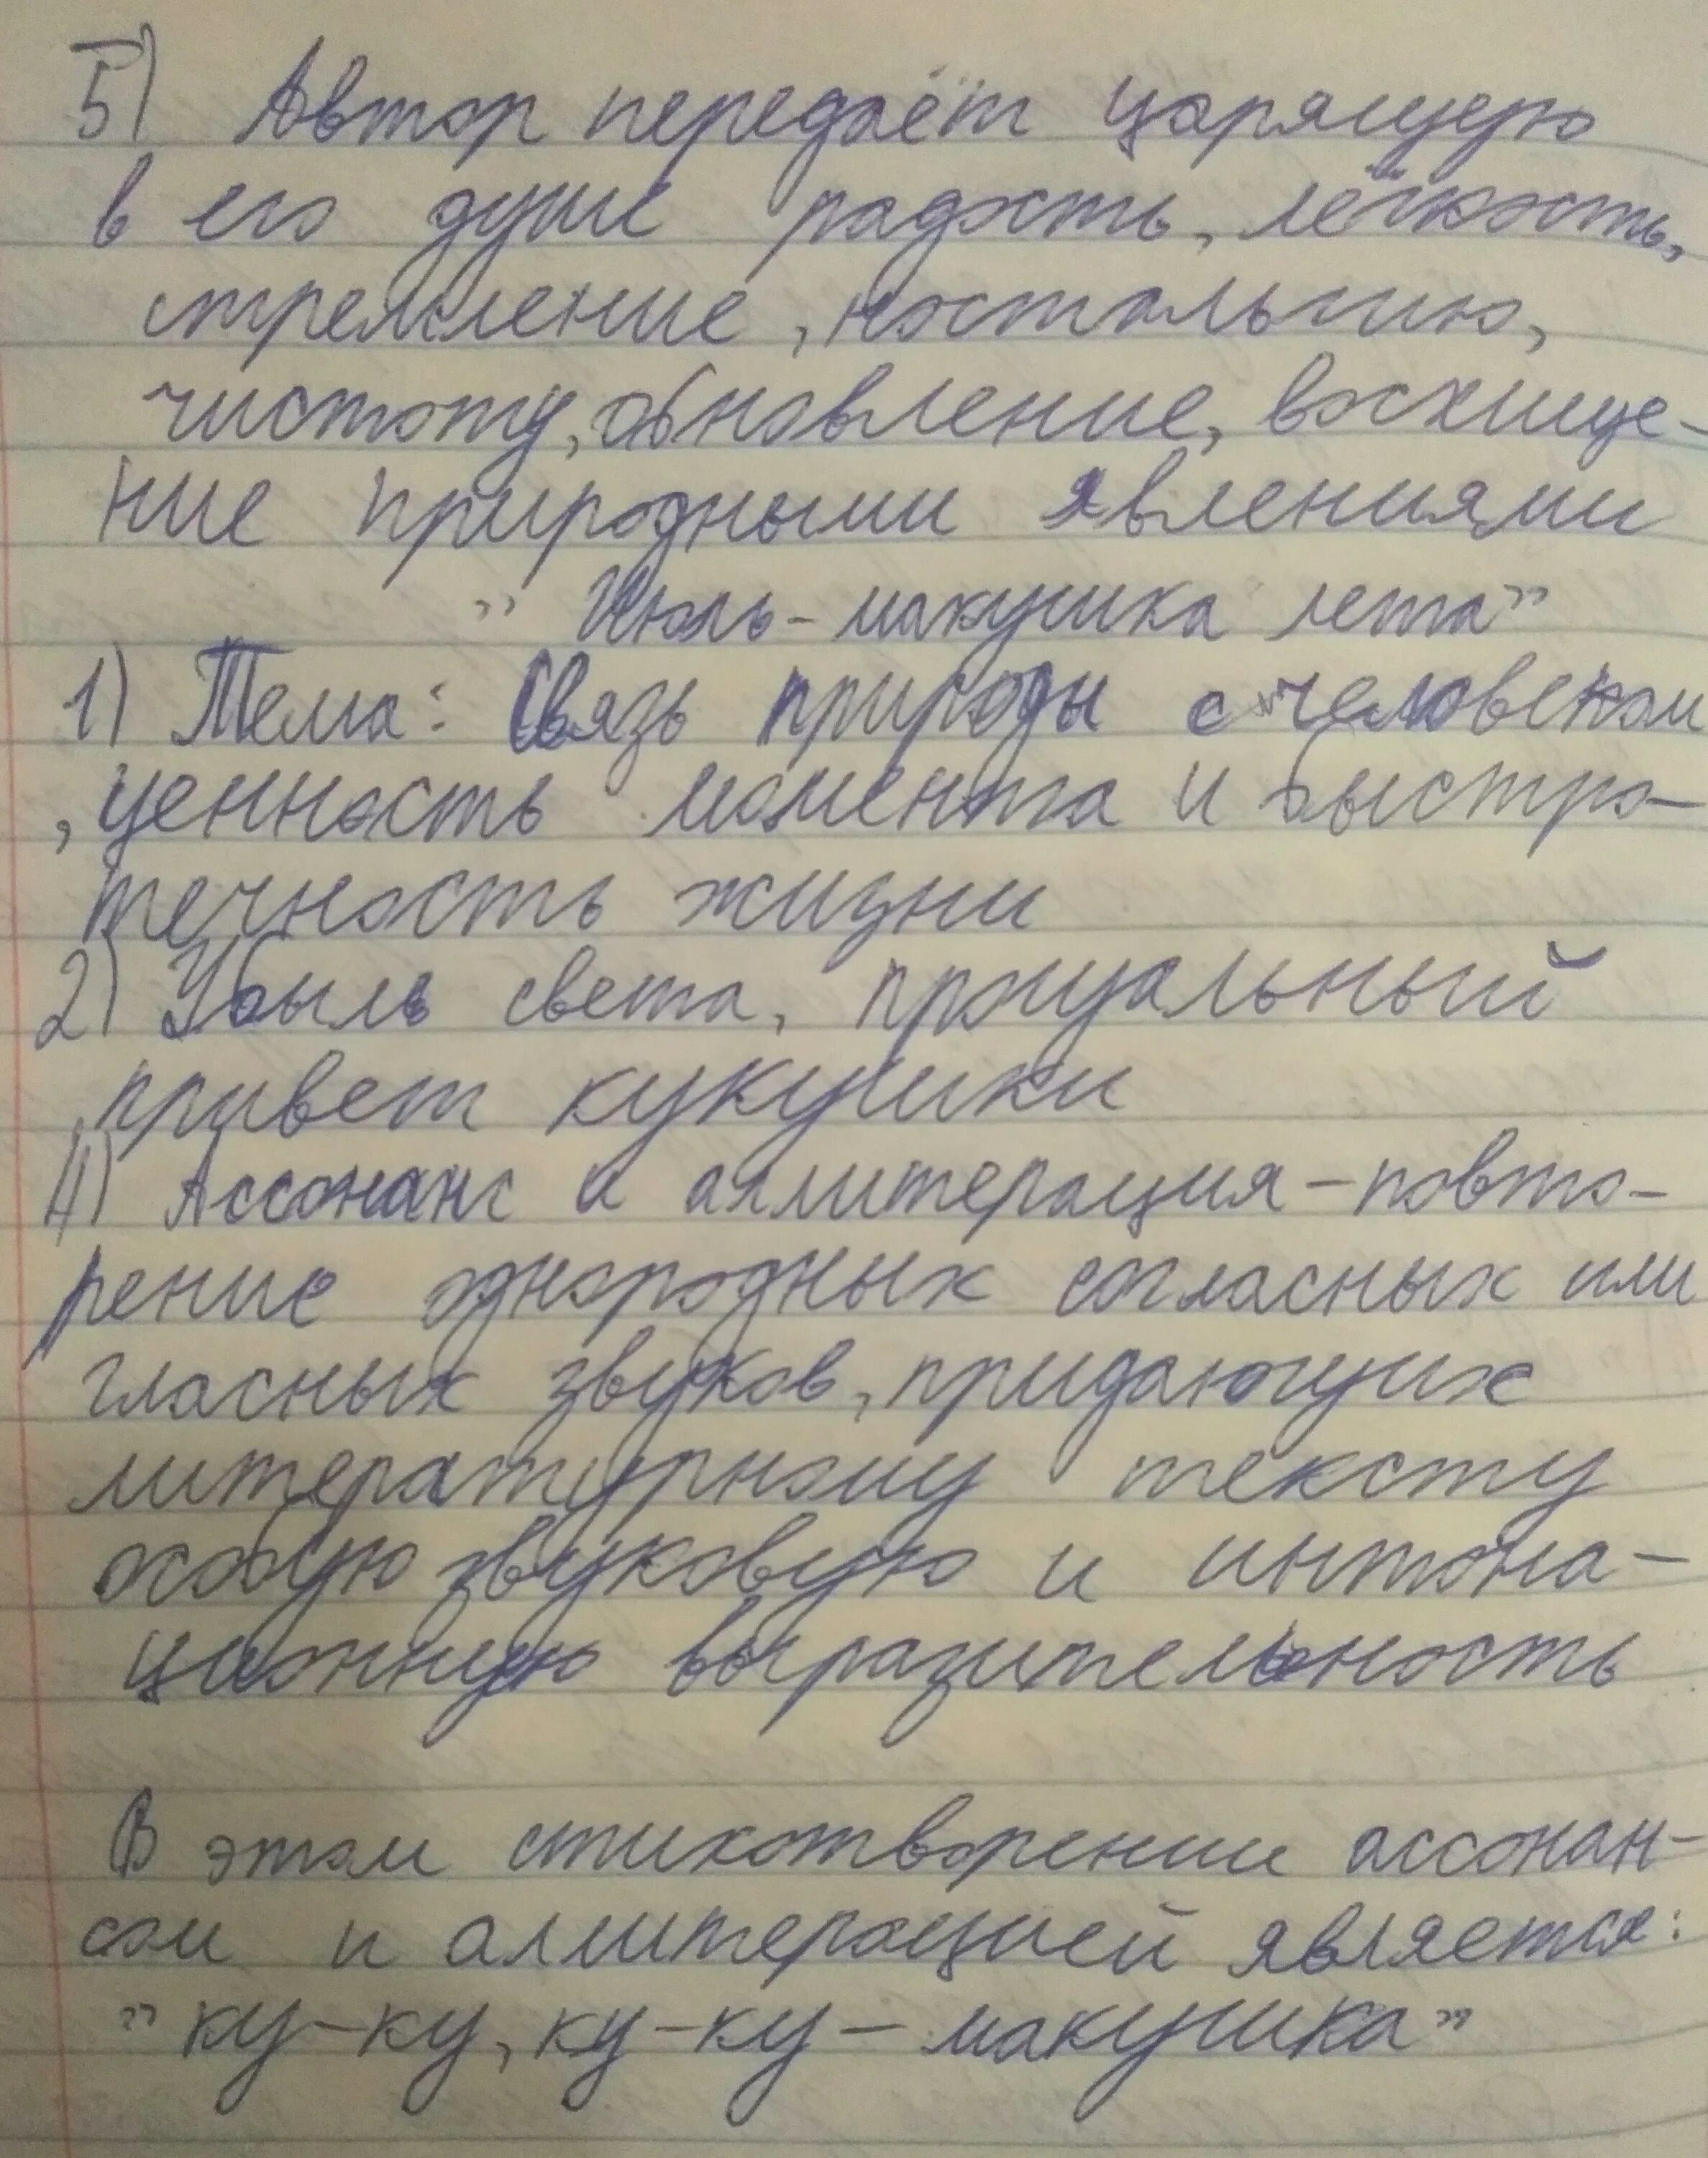 5) Автор передаёт царящую
в его душе радость, лёгкость,
стремление, ностальгию,
чистоту, обновление, восхище-
ние природными явлениями
"Июль-макушка лета"
1) Тема: Связь природы с человеком
, ценность момента и быстро-
течность жизни
2) Убыль света, прощальный
привет кукушки
4) Ассонанс и аллитерация - повто-
рение однородных согласных или
гласных звуков, придающих
литературному тексту
особую звуковую и интона-
ционную выразительность
В этом стихотворении ассонан-
сом и алитерацией является:
"ку-ку, ку-ку - макушка"